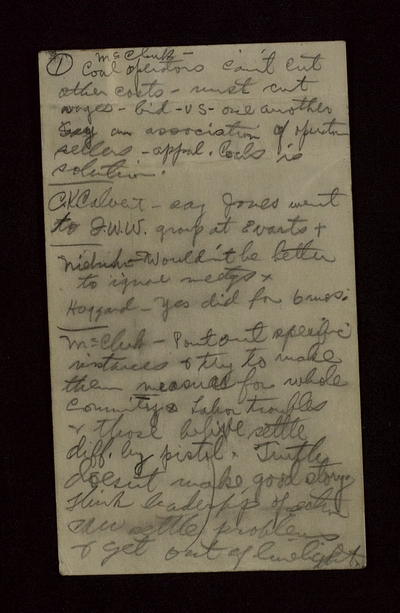 ① McClurk -
Coal operators can't cut
other costs - must cut
wages - bid - vs - one another
Say an association of operator
sellers - appal. Coals is
solution.
C.K Calvert - say Jones went
to I.W.W. group at Evarts +
Wouldn't be better
to ignore
Hoggard - Yes did for 6 mos.
McClurk - Point out specific
instances & try to make
them measure for whole
community & Labor troubles
& those believe settle
diff. by pistol. Truth
doesn't make good story
Think leadership of
settle problems
& get out of limelight